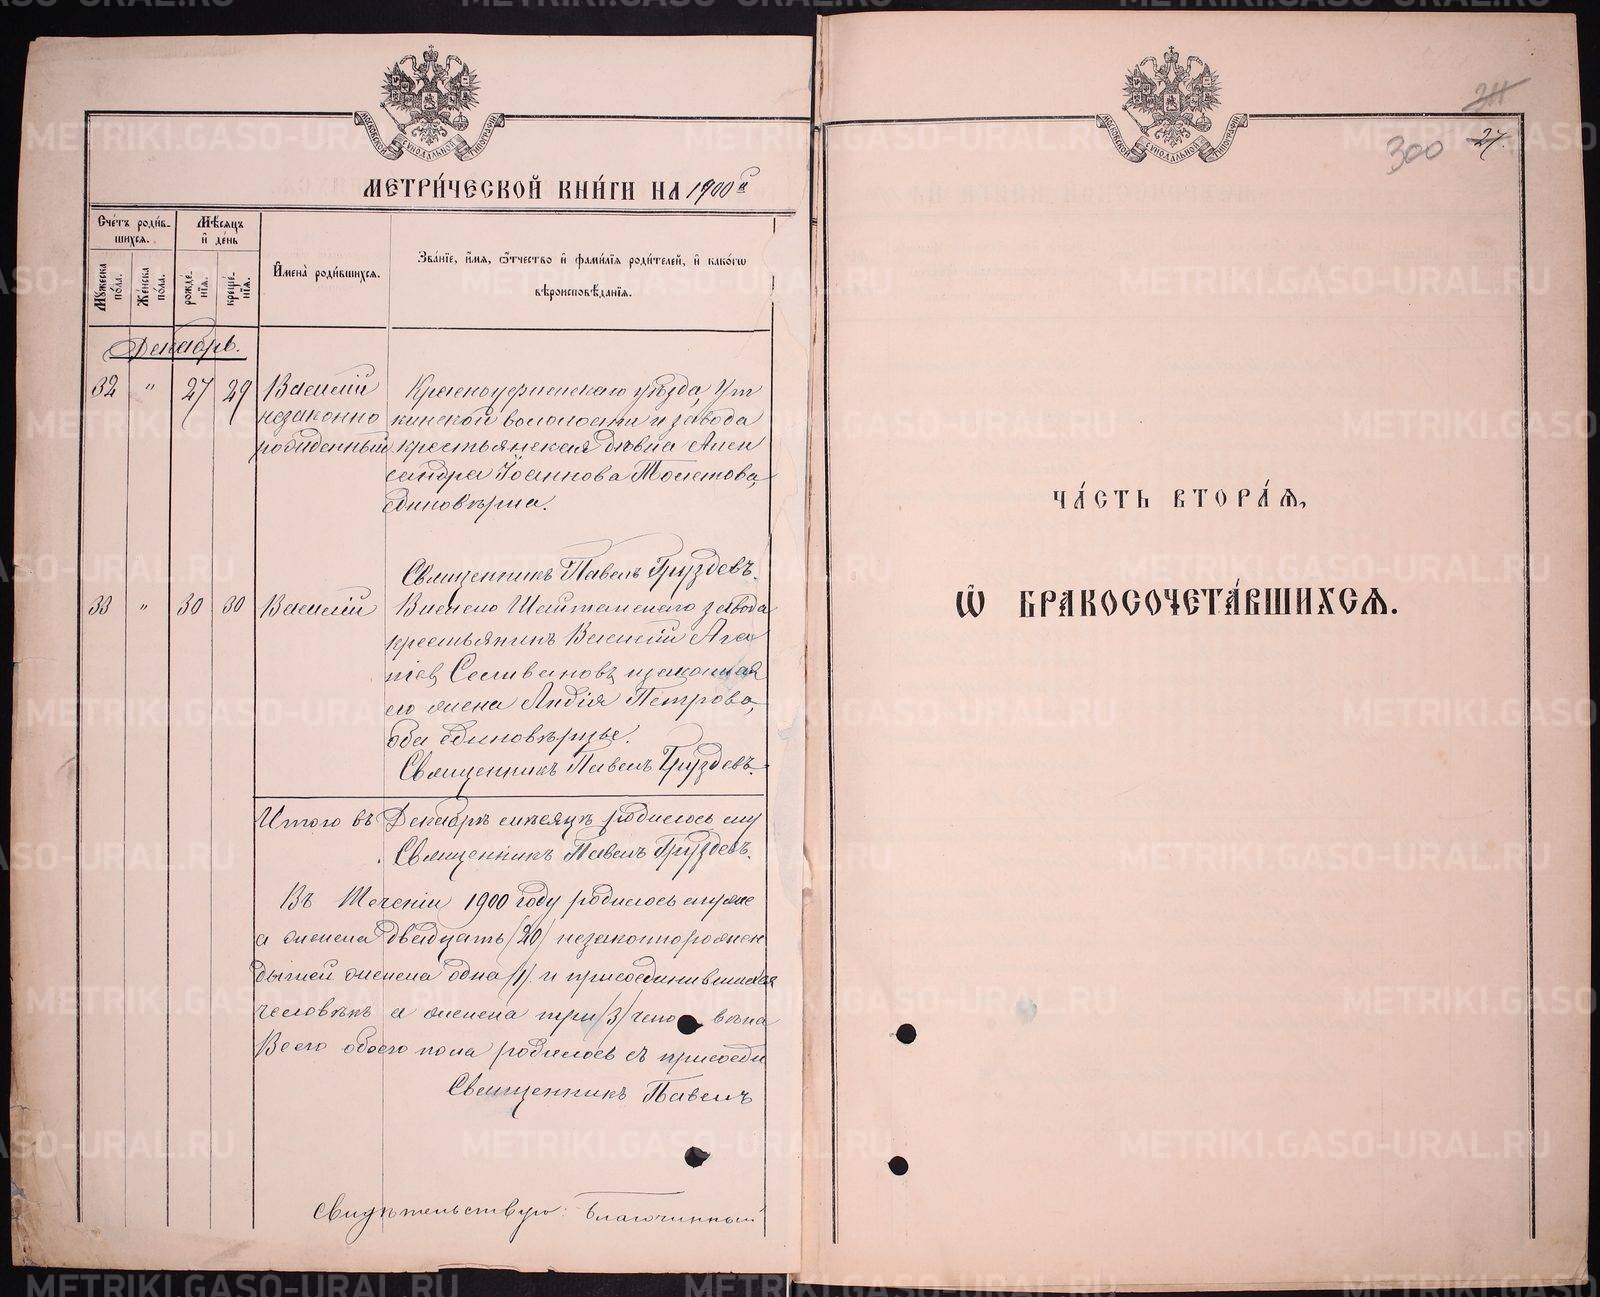 МОСКОВСКОЙ СѴНОДАЛЬНОЙ ТИПОГРАФІИ
МЕТРИ́ЧЕСКОЙ КНИ́ГИ НА 1900 г
Сче́тъ роди́в-
шихся.
Мѣ́сяцъ
и҆ де́нь
Мꙋ́жеска
по́ла.
Же́нска
по́ла.
рожде́-
нїѧ.
креще́-
нїѧ.
И҆мена̀ роди́вшихся.
Зва́нїе, и҆́мѧ, ѻ҆́тчество и҆ фами́лїѧ роди́телей, и҆ како́гѡ
вѣроисповѣ́данїѧ.
Декабрь.
32 " 27 29 Василій
незаконно
рожденный
Красноуфимскаго уѣзда, Ут
кинской волости и завода
крестьянская дѣвица Алек
сандра Іоаннова
единовѣрка.
Священникъ Павелъ Груздевъ.
33 " 30 30 Василій
Висимо Шайтанскаго завода
крестьянинъ Василій Ага
піев Селивановъ и законная
его жена Лидія Петрова,
оба единовѣрцы.
Священникъ Павелъ Груздевъ.
Итого въ Декабрѣ мѣсяцѣ родилось му
Священникъ Павелъ Груздевъ.
Въ теченіи 1900 году родилось муже
а женска двадцать /20/ незаконнорожден
женска одна /1/ и присоединившихся
человѣкъ а женска три /3/ чело вѣка
Всего обоего пола родилось съ присоеди
Священникъ Павелъ
Свидѣтельствую: Благочинный
МОСКОВСКОЙ СѴНОДАЛЬНОЙ ТИПОГРАФІИ
300
27.
ЧА́СТЬ ВТОРА́Ѧ,
Ѡ҆ БРАКОСОЧЕТА́ВШИХСѦ.
METRIKI.GASO-URAL.RU